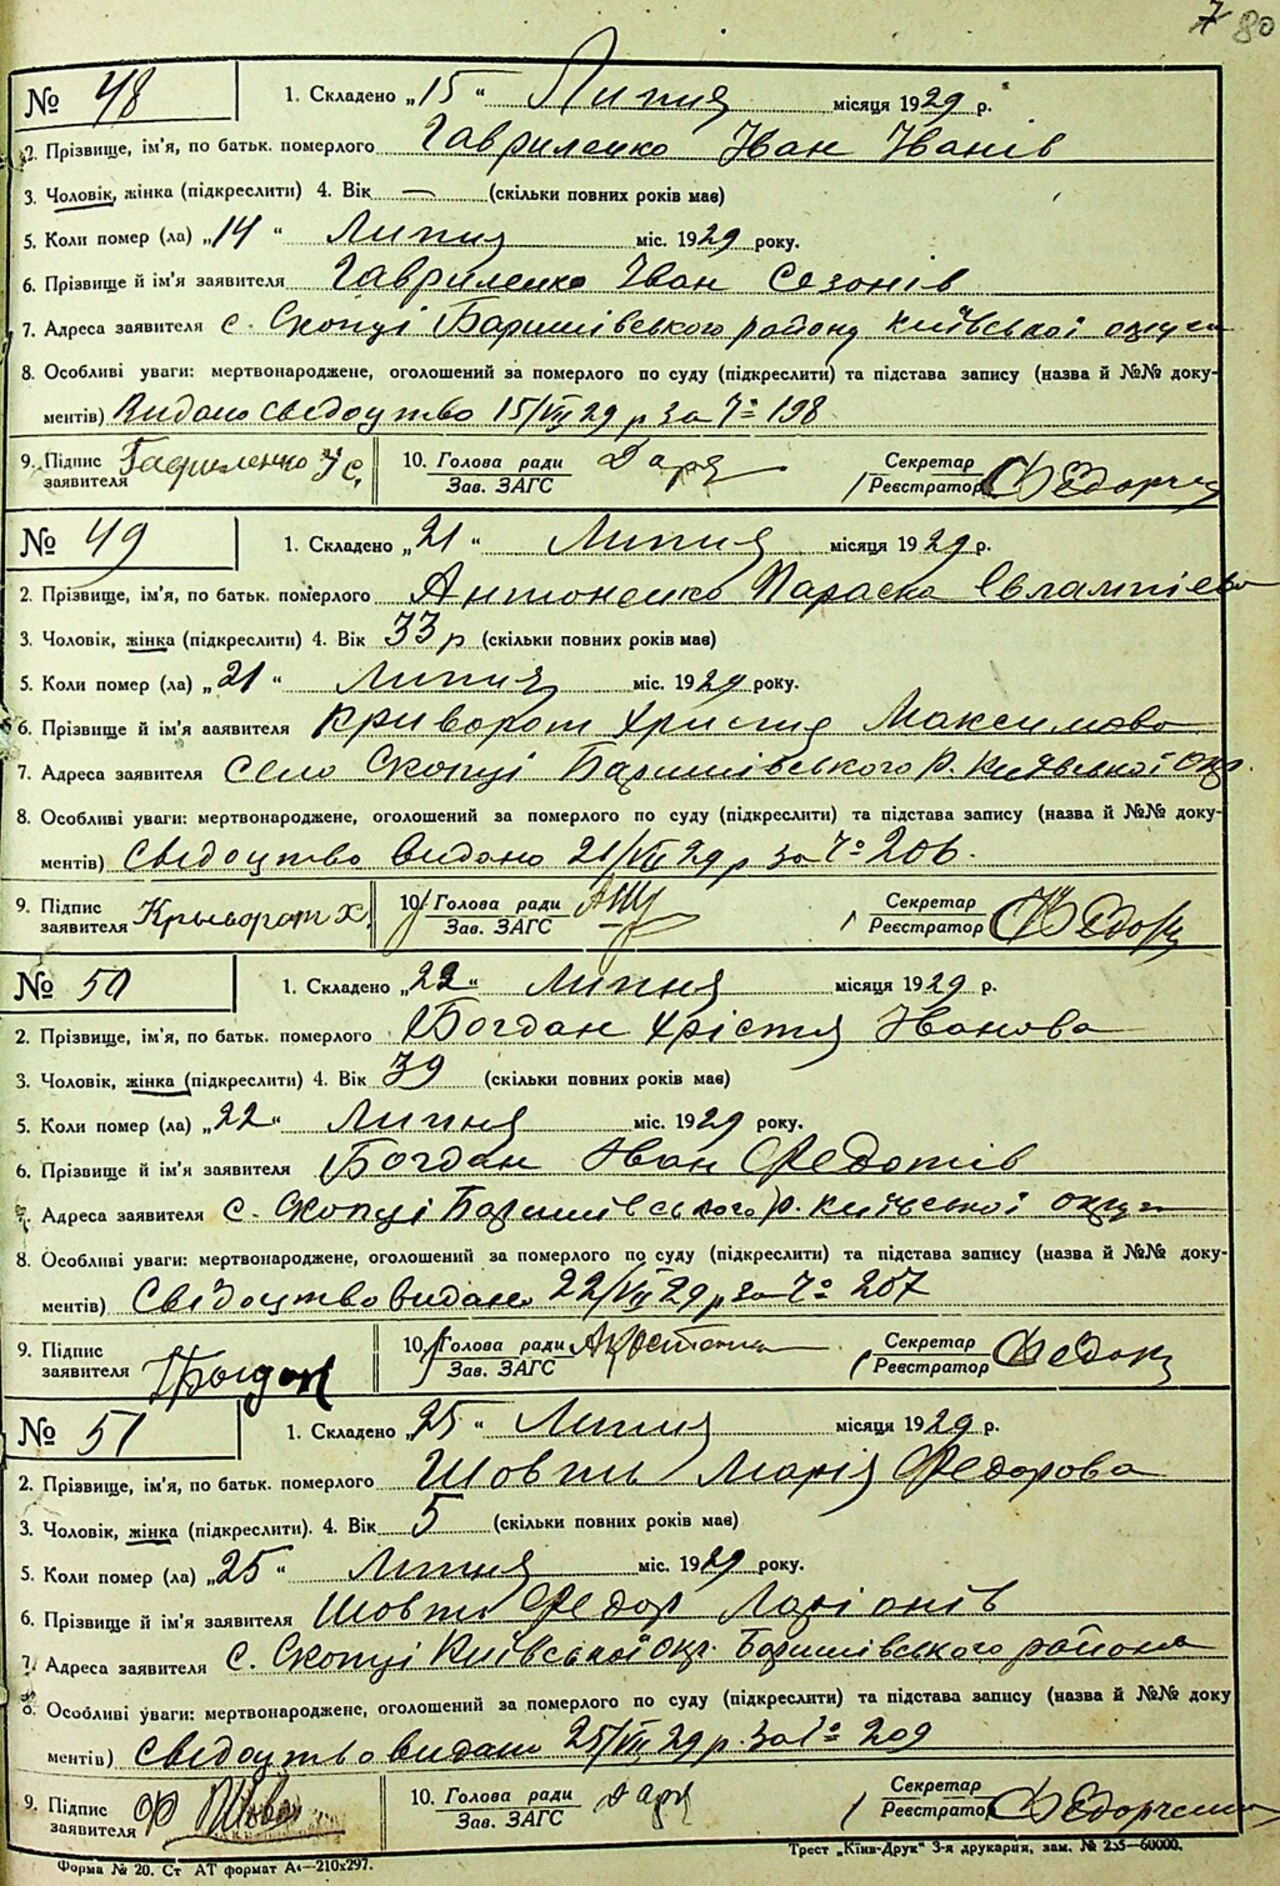 7 80
№ 48 1. Складено „15“ Липня місяця 1929 р.
2. Прізвище, ім'я, по батьк. померлого Гавриленко Іван Іванів
3. Чоловік, жінка (підкреслити) 4. Вік — (скільки повних років має)
5. Коли помер (ла) „14“ Липня міс. 1929 року.
6. Прізвище й ім'я заявителя Гавриленко Іван Сезонів
7. Адреса заявителя с. Скопці Баришівського району Київської округи
8. Особливі уваги: мертвонароджене, оголошений за померлого по суду (підкреслити) та підстава запису (назва й №№ доку-
ментів) Видано свідоцтво 15/VII 29 р за № 198
9. Підпис заявителя Гавриленко І С. 10. Голова ради Зав. ЗАГС Секретар Реєстратор
№ 49 1. Складено „21“ Липня місяця 1929 р.
2. Прізвище, ім'я, по батьк. померлого Антоненко Параска Євлампієва
3. Чоловік, жінка (підкреслити) 4. Вік 33 р (скільки повних років має)
5. Коли помер (ла) „21“ Липня міс. 1929 року.
6. Прізвище й ім'я заявителя Криворот Христя Максимова
7. Адреса заявителя Село Скопці Баришівського р. Київської окр.
8. Особливі уваги: мертвонароджене, оголошений за померлого по суду (підкреслити) та підстава запису (назва й №№ доку-
ментів) Свідоцтво видано 21/VII 29 р за № 206.
9. Підпис заявителя Крыворот Х. 10. Голова ради Зав. ЗАГС Секретар Реєстратор
№ 50 1. Складено „22“ Липня місяця 1929 р.
2. Прізвище, ім'я, по батьк. померлого Богдан Хрістя Іванова
3. Чоловік, жінка (підкреслити) 4. Вік 39 (скільки повних років має)
5. Коли помер (ла) „22“ Липня міс. 1929 року.
6. Прізвище й ім'я заявителя Богдан Іван Федотів
7. Адреса заявителя с. Скопці Баришівського р. Київської округи
8. Особливі уваги: мертвонароджене, оголошений за померлого по суду (підкреслити) та підстава запису (назва й №№ доку-
ментів) Свідоцтво видано 22/VII 29 р за № 207
9. Підпис заявителя 10. Голова ради Зав. ЗАГС Секретар Реєстратор
№ 51 1. Складено „25“ Липня місяця 1929 р.
2. Прізвище, ім'я, по батьк. померлого Шовть Марія Федорова
3. Чоловік, жінка (підкреслити). 4. Вік 5 (скільки повних років має)
5. Коли помер (ла) „25“ Липня міс. 1929 року.
6. Прізвище й ім'я заявителя Шовть Федор Ларіонів
7. Адреса заявителя с. Скопці Київської окр. Баришівського района
8. Особливі уваги: мертвонароджене, оголошений за померлого по суду (підкреслити) та підстава запису (назва й №№ доку
ментів) Свідоцтво видано 25/VII 29 р. за № 209
9. Підпис заявителя 10. Голова ради Зав. ЗАГС Секретар Реєстратор Федорченко
Форма № 20. Ст АТ формат А4—210х297. Трест „Київ-Друк“ 3-я друкарня, зам. № 255—60000.